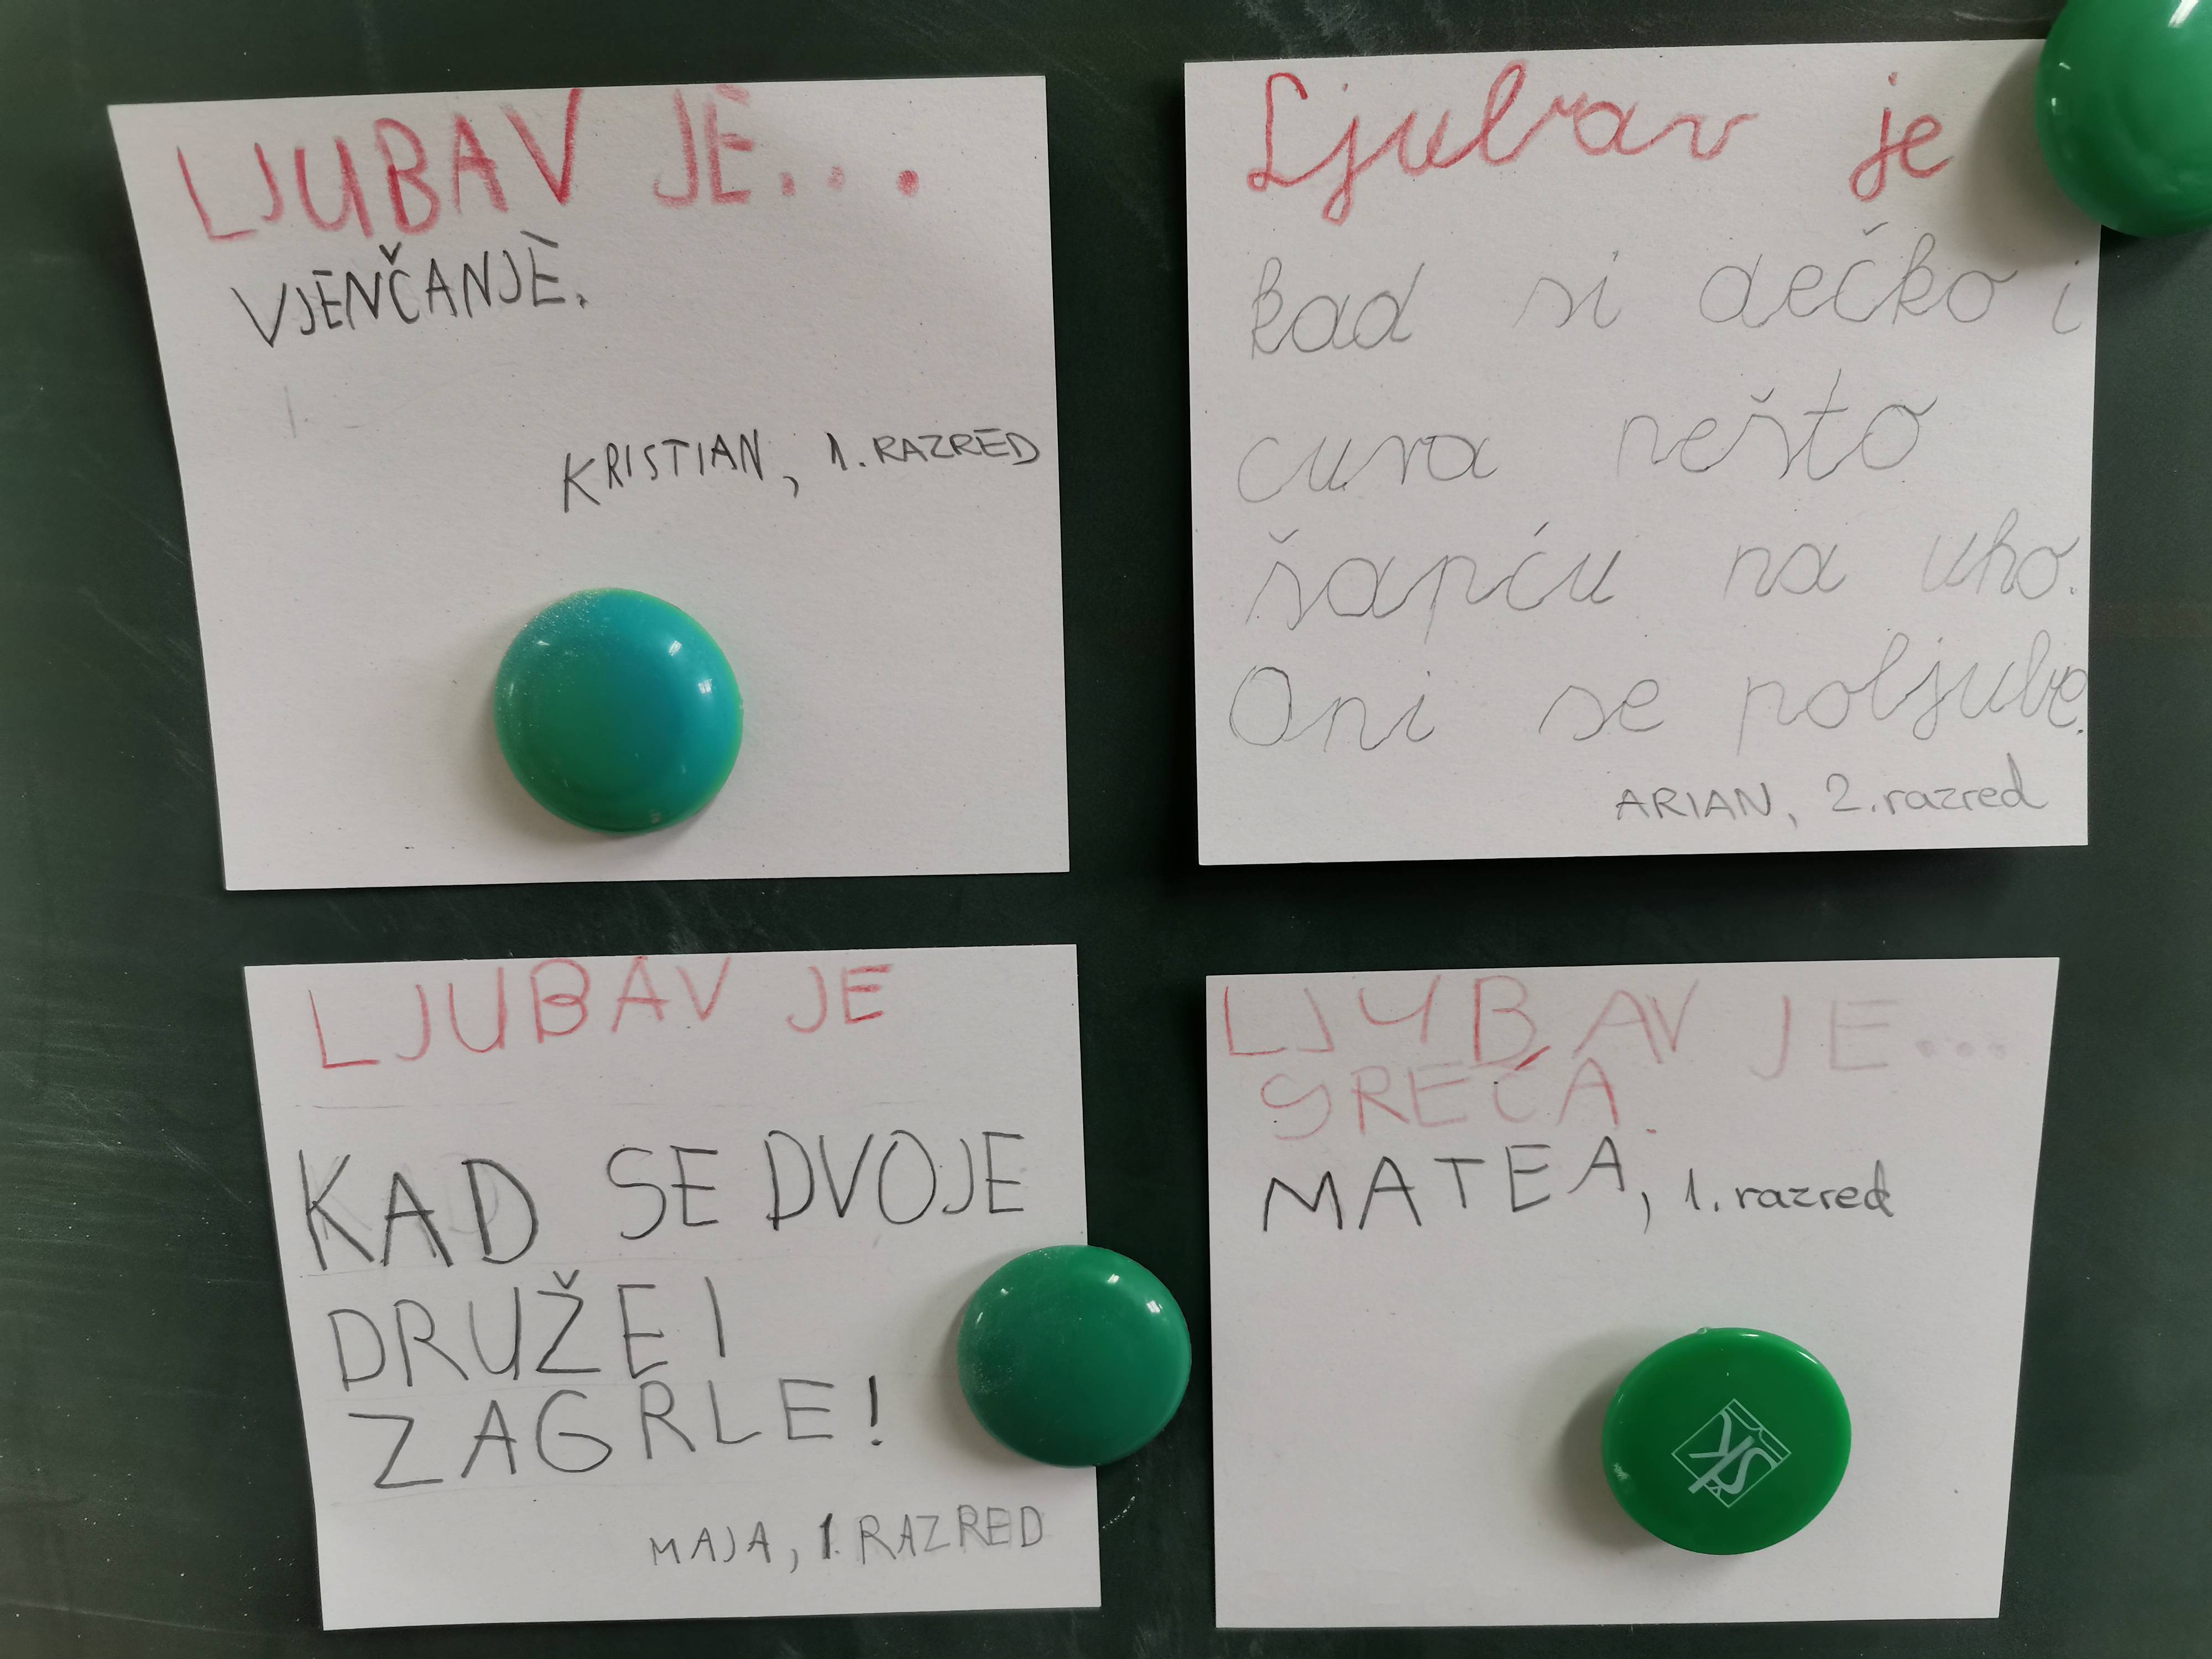 LJUBAV JE...
VJENČANJE.
KRISTIAN, 1. RAZRED
Ljubav je
kad si dečko i
cura nešto
šapću na uho.
Oni se poljube.
ARIAN, 2. razred
LJUBAV JE
KAD SE DVOJE
DRUŽE I
ZAGRLE!
MAJA, 1. RAZRED
LJUBAV JE...
SREĆA.
MATEA, 1. razred